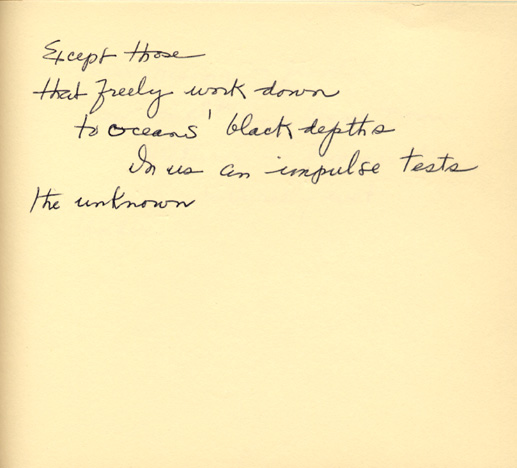 Except those
that freely work down
to oceans' black depths
In us an impulse tests
the unknown